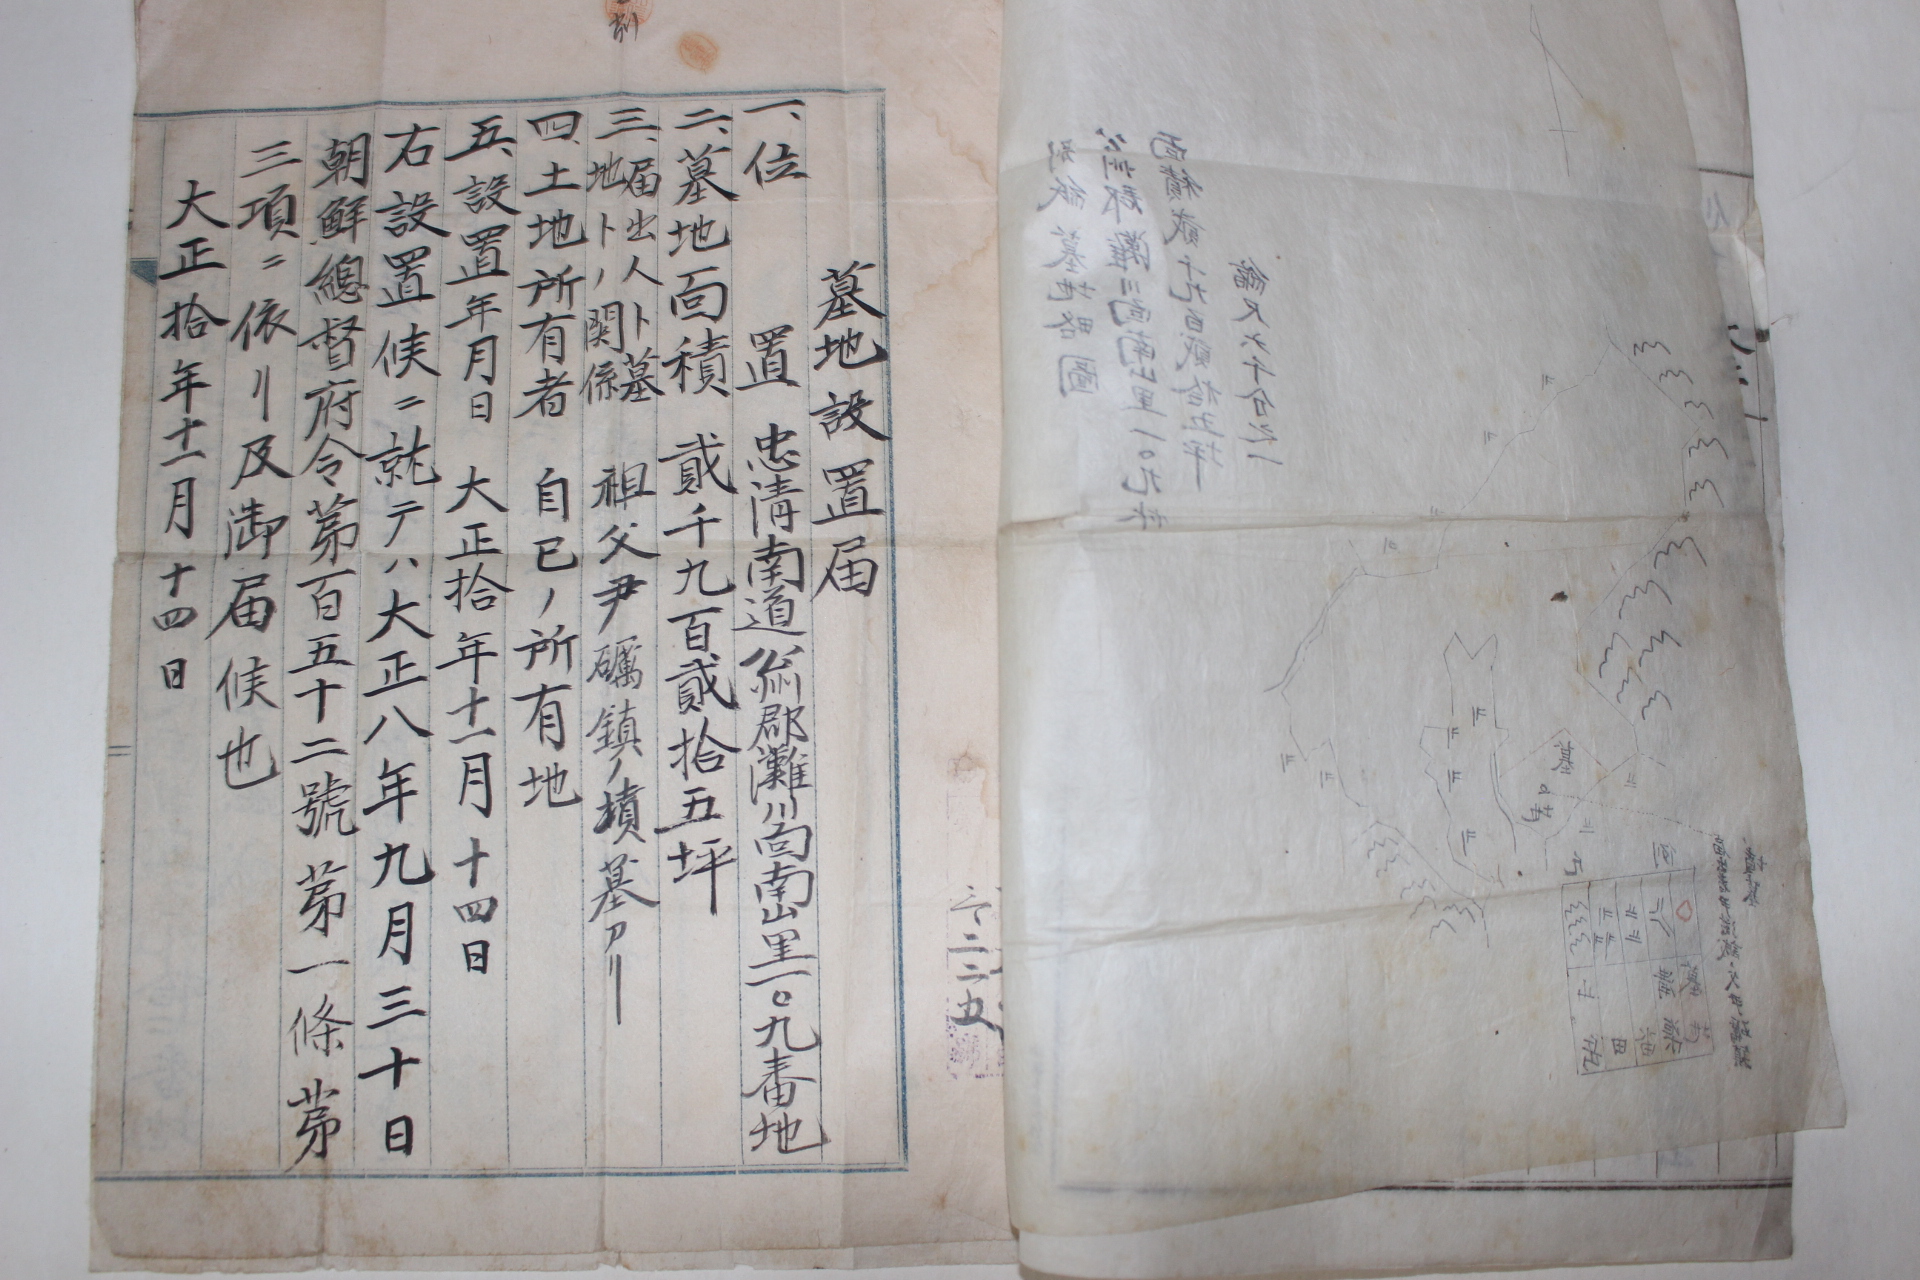 墓地設置届
一、位置 忠清南道公州郡灘川面南山里一〇九番地
二、墓地面積 貳千九百貳拾五坪
三、届出人ト墓地トノ関係 祖父尹礪鎮ノ墳墓アリ
四、土地所有者 自己ノ所有地
五、設置年月日 大正拾年十一月十四日
右設置候ニ就テハ大正八年九月三十日
朝鮮總督府令第百五十二號第一條第
三項ニ依リ及御届候也
大正拾年十一月十四日
縮尺六千分之一
面積貳千九百貳拾五坪
公州郡灘川面南山里一〇九
別紙墓地略圖
六二二五